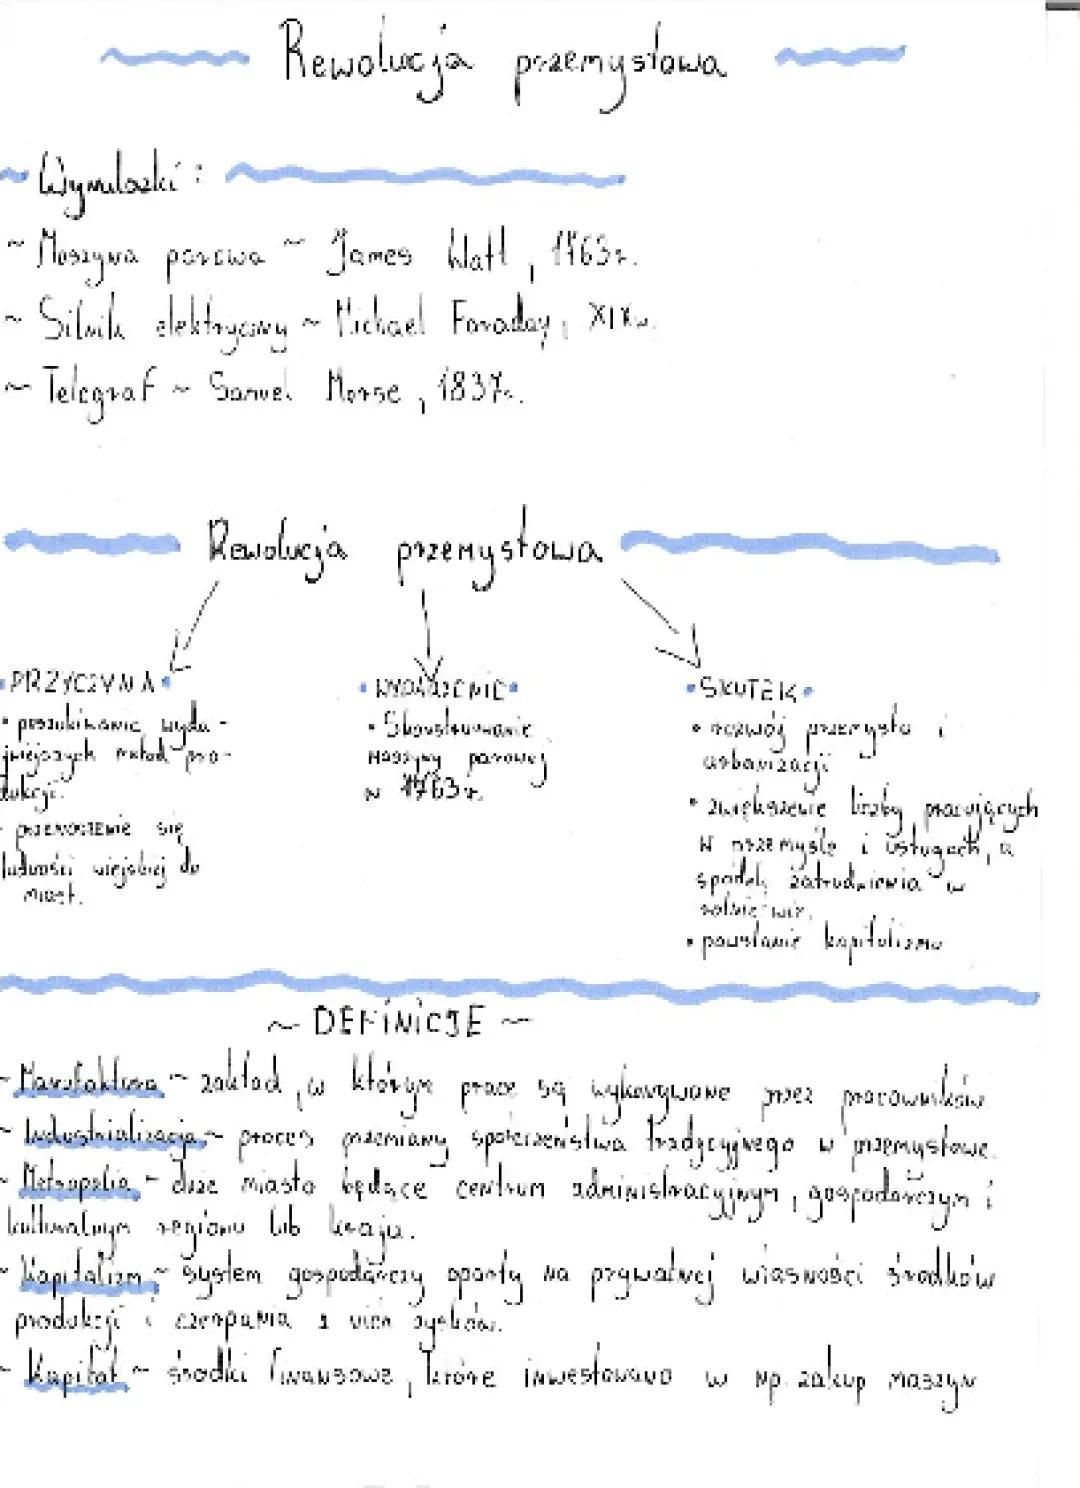 Rewolucja przemysłowa
~ Wynalazki:
~ Maszyna parowa ~ James Watt, 1763r.
~ Silnik elektryczny ~ Michael Faraday, XIXw.
~ Telegraf ~ Samuel Morse, 1837r.
Rewolucja przemysłowa
• PRZYCZYNA • • WYDARZENIE • • SKUTEK •
• poszukiwanie wyda-
jniejszych metod pro-
dukcji.
- przenoszenie się
ludności wiejskiej do
miast.
• Skonstruowanie
maszyny parowej
w 1763r.
• rozwój przemysłu i
urbanizacji
• zwiększenie liczby pracujących
w przemyśle i usługach, a
spadek zatrudnienia w
rolnictwie.
• powstanie kapitalizmu
~ DEFINICJE ~
~ Manufaktura ~ zakład, w którym prace są wykonywane przez pracowników.
~ Industrializacja ~ proces przemiany społeczeństwa tradycyjnego w przemysłowe.
~ Metropolia ~ duże miasto będące centrum administracyjnym, gospodarczym i
kulturalnym regionu lub kraju.
~ Kapitalizm ~ system gospodarczy oparty na prywatnej własności środków
produkcji i czerpania z nich zysków.
~ Kapitał ~ środki finansowe, które inwestowano w np. zakup maszyn